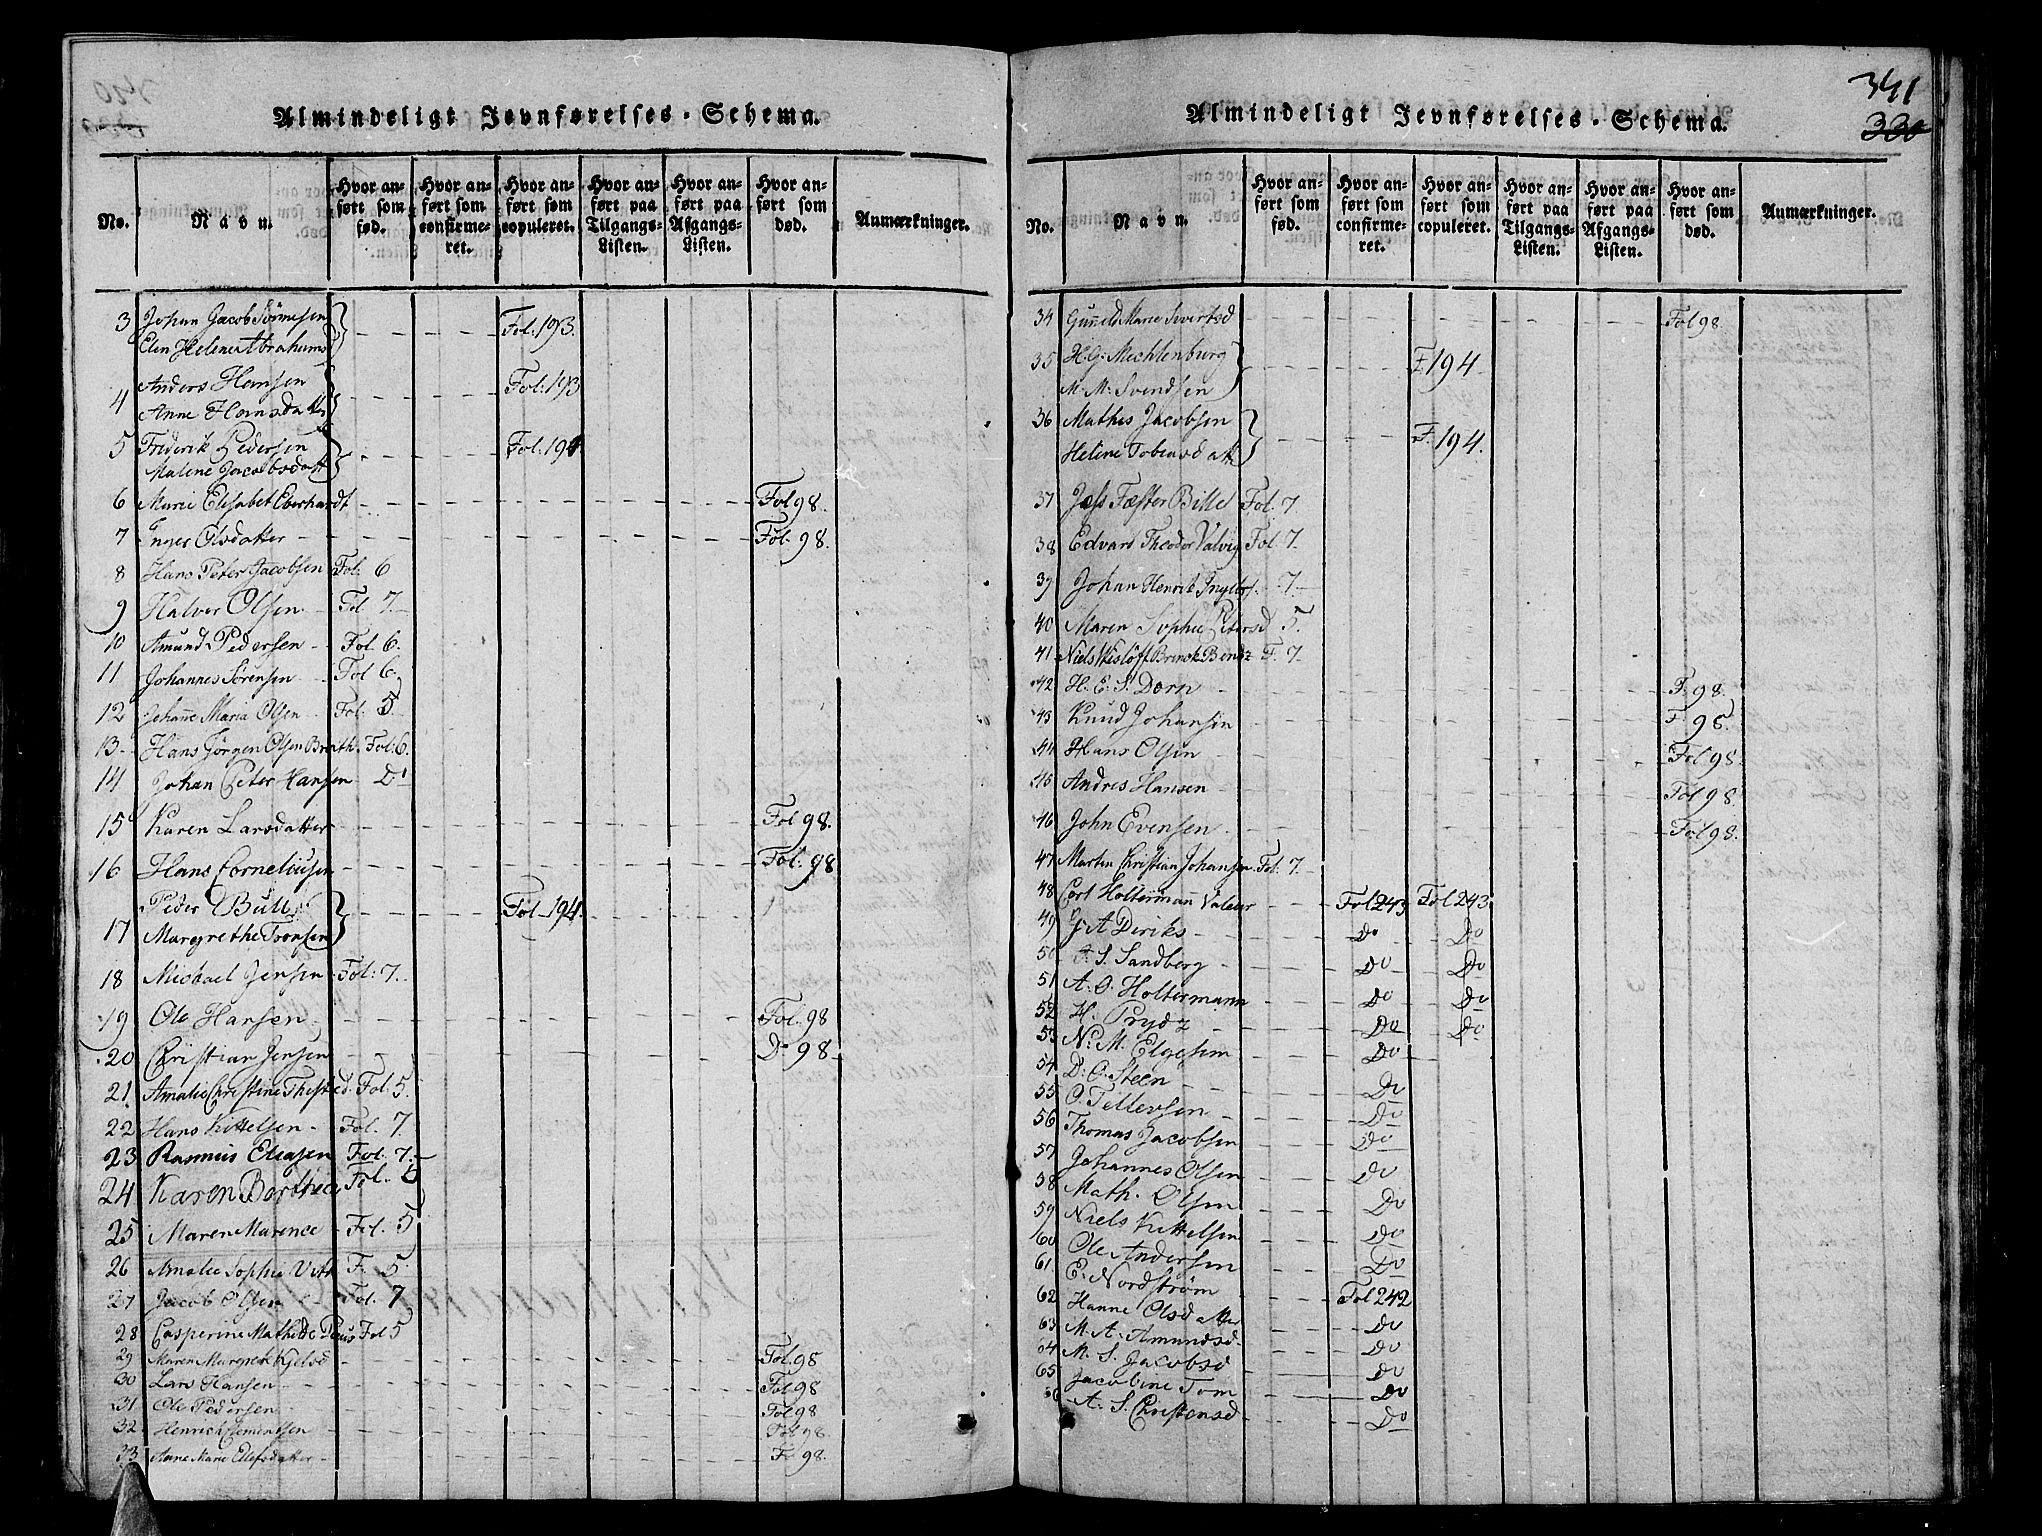 Almindeligt Jevnførelses-Schema.
No.
Navn.
Hvor anført som fød.
Hvor anført som confirmeret.
Hvor anført som copuleret.
Hvor anført paa Tilgangs-Listen.
Hvor anført paa Afgangs-Listen.
Hvor anført som død.
Anmærkninger.
3 Johan Jacob Sörmesen
Elen Helene Abrahams Fol. 193.
4 Anders Hansen
Anne Hansdatter Fol. 193
5 Friderik Pedersen
Malene Jacobsdatt Fol. 194
6 Marie Elisabet Eberhardt Fol 98.
7 Inger Olsdatter Fol. 98.
8 Hans Peter Jacobsen Fol. 6
9 Halver Olsen Fol 7.
10 Amund Pedersen Fol. 6.
11 Johannes Sörensen Fol 6.
12 Johañe Maria Olsen Fol. 5.
13 Hans Jörgen Olsen Fol. 6.
14 Johan Peter Hansen Do
15 Karen Larsdatter Fol 98.
16 Hans Corneliusen Fol. 98
Peder Bull
17 Margrethe Tronsen Fol 194.
18 Michael Jensen Fol. 7.
19 Ole Hansen Fol. 98
20 Christian Jensen Do 98
21 Amalie Christine Fol. 5.
22 Hans Kittelsen Fol. 7.
23 Rasmus Eliasen Fol. 7.
24 Karen Berthea Fol. 5
25 Maren Marence Fol. 5
26 Amalie Sophie F. 5
27 Jacob Olsen Fol. 7
28 Casperine Mathilde Fol 5
29 Maren Margrete Fol. 98
30 Lars Hansen Fol 98
31 Ole Pedersen Fol 98
32 Henrich Clemendsen Fol 98
33 Anne Marie Ellefsdatter F. 98.
341
330
Almindeligt Jevnførelses-Schema.
No.
Navn.
Hvor anført som fød.
Hvor anført som confirmeret.
Hvor anført som copuleret.
Hvor anført paa Tilgangs-Listen.
Hvor anført paa Afgangs-Listen.
Hvor anført som død.
Anmærkninger.
34 Guñeld Marie Sivertsd Fol 98.
35 H. G. Mechlenburg
M. M. Svendsen F 194
36 Mathis Jacobsen
Helene Tobiasdatt F. 194.
37 Jess Fæster Bille Fol. 7.
38 Edvard Theodor Valvig Fol 7.
39 Johan Henrik 7.
40 Maren Sophie Petersd 5.
41 Niels Wislöff Brinck Bendz F. 7.
42 H. E. S. Dorn F. 98.
43 Knud Johansen F 98.
44 Hans Olsen Fol 98.
45 Andres Hansen Fol 98.
46 John Evensen Fol 98.
47 Martin Christian Johansen Fol. 7.
48 Cort Holtermañ Valeur Fol 243 Fol 243
49 A Diriks Do Do
50 S. Sandberg Do Do
51 A. O. Holtermann Do Do
52 H. Prydz Do Do
53 N. M. Elgesem Do
54 D. O. Steen Do
55 O. Tellevsen Do
56 Thomas Jacobsen Do
57 Johannes Olsen Do
58 Math. Olsen Do
59 Niels Kittelsen Do
60 Ole Andersen Do
61 E. Nordström Fol 242
62 Hanne Olsdatter Do
63 M. A. Amundsd. Do
64 M. S. Jacobsd Do
65 Jacobine Tom Do
66 A. S. Christensd Do